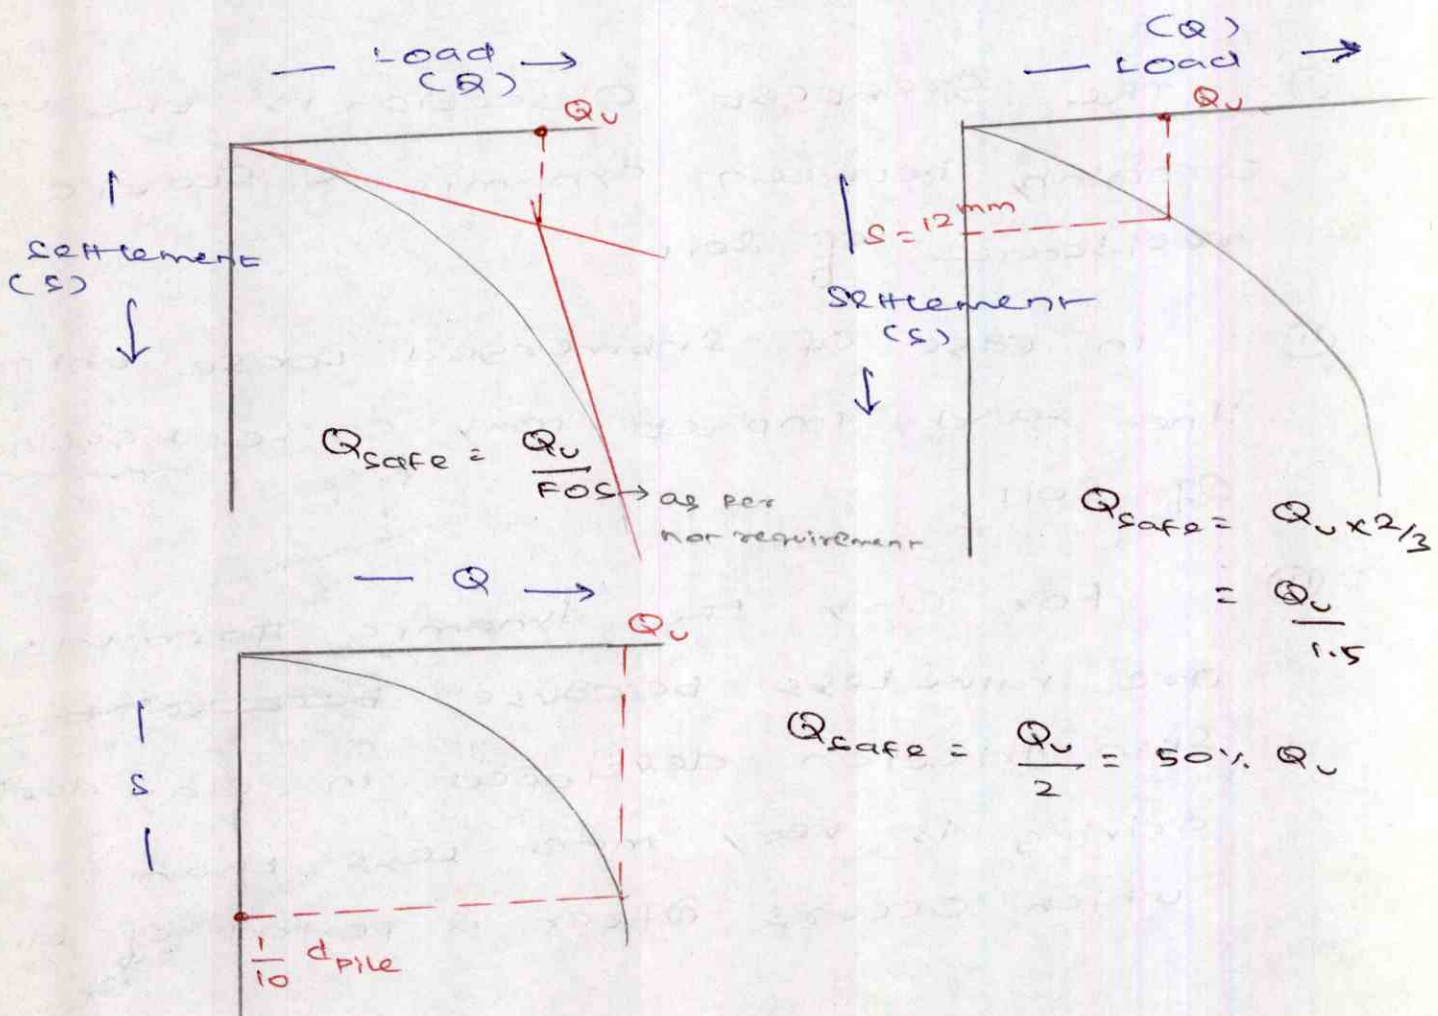 Load →
(Q)
Qu
Settlement
(S)
↓
Qsafe = Qu/FOS → as per
nor requirement
(Q)
Load →
Qu
S = 12mm
Settlement
(S)
↓
Qsafe = Qu x 2/3
= Qu/1.5
Q →
Qu
S
1/10 dpile
Qsafe = Qu/2 = 50% Qu